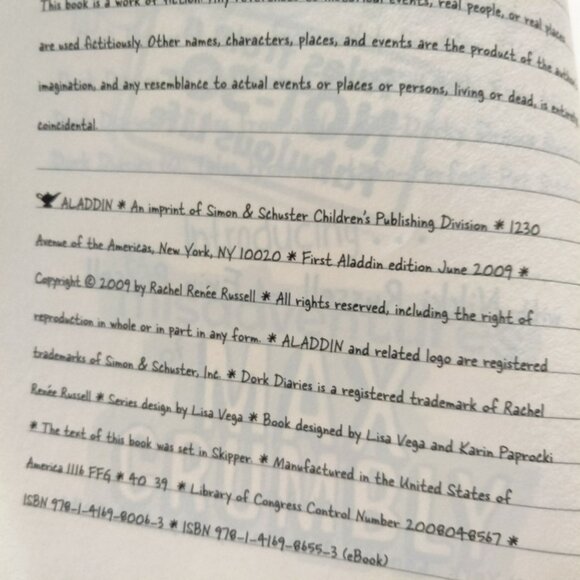 This book is a work of fiction. Any references to historical events, real people, or real places
are used fictitiously. Other names, characters, places, and events are the product of the author's
imagination, and any resemblance to actual events or places or persons, living or dead, is entirely
coincidental.
ALADDIN * An imprint of Simon & Schuster Children's Publishing Division * 1230
Avenue of the Americas, New York, NY 10020 * First Aladdin edition June 2009 *
Copyright © 2009 by Rachel Renée Russell * All rights reserved, including the right of
reproduction in whole or in part in any form. * ALADDIN and related logo are registered
trademarks of Simon & Schuster, Inc. * Dork Diaries is a registered trademark of Rachel
Renée Russell * Series design by Lisa Vega * Book designed by Lisa Vega and Karin Paprocki
* The text of this book was set in Skipper. * Manufactured in the United States of
America 1116 FFG * 40 39 * Library of Congress Control Number 2008048567 *
ISBN 978-1-4169-8006-3 * ISBN 978-1-4169-8655-3 (eBook)
MAX
CRUMBLY